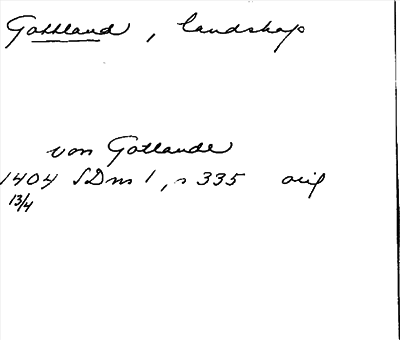 Gottland, landskap
von Gotlande
1404 SDns 1, s 335 orig
13/4